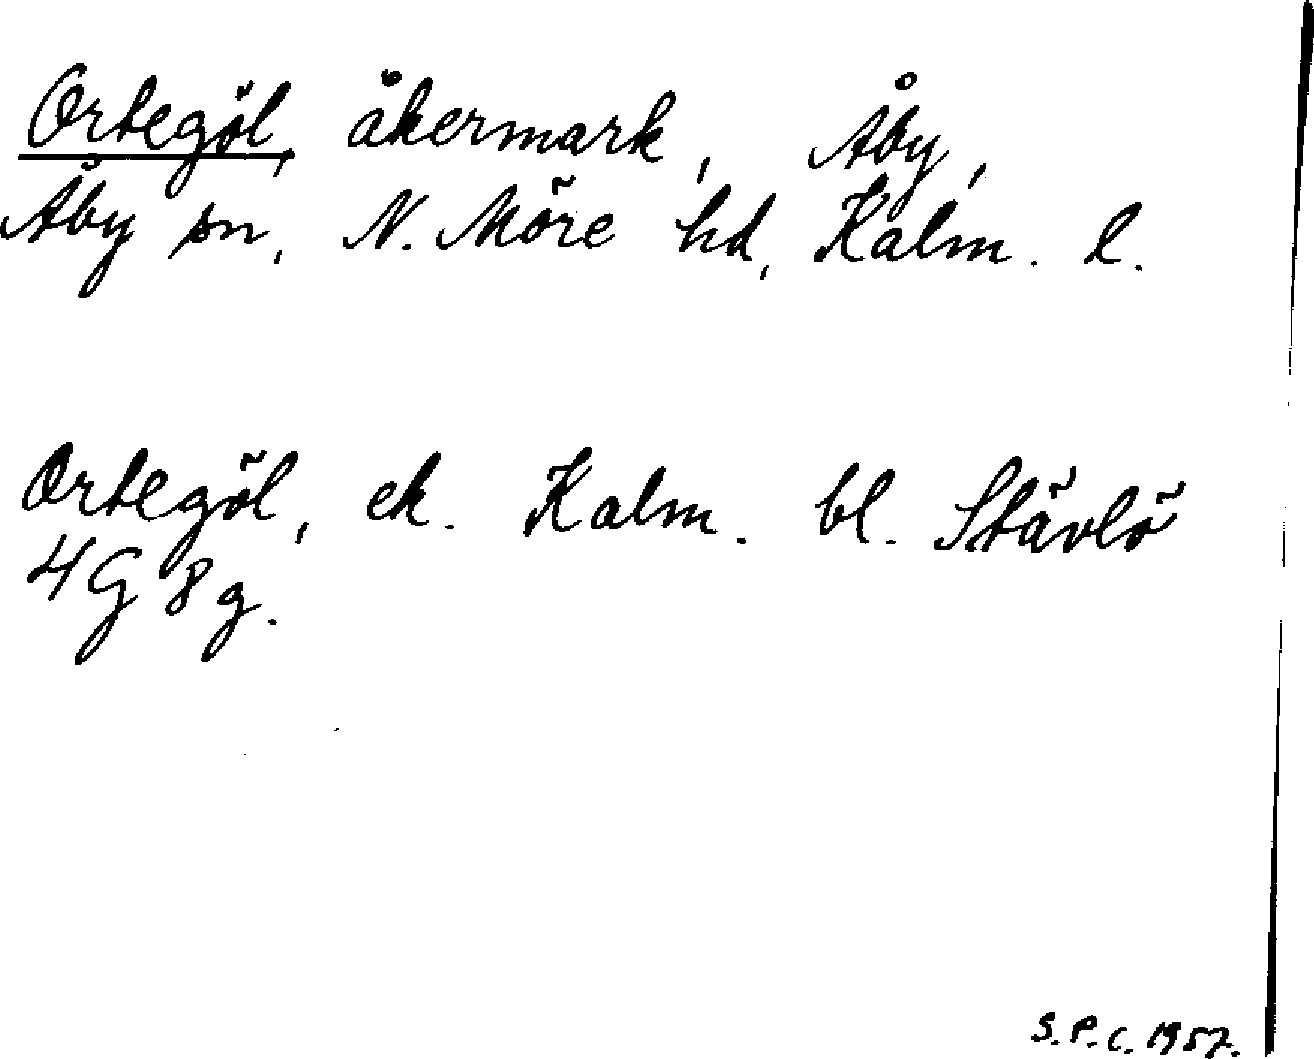 Ortegöl, åkermark, Åby,
Åby sn, N. Möre hd, Kalm. l.
Ortegöl, ek. Kalm. bl. Stävlö
4G 8g.
S.P.C. 1957.